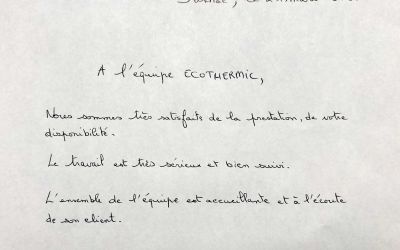 A l'équipe ECOTHERMIC,
Nous sommes très satisfaits de la prestation, de votre
disponibilité.
Le travail est très sérieux et bien suivi.
L'ensemble de l'équipe est accueillante et à l'écoute
de son client.